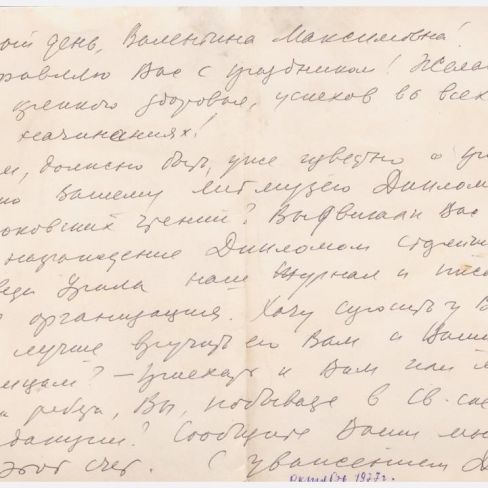 ый день, Валентина Максимовна!
равляю Вас с праздником! Желаю
крепкого здоровья, успехов во всех
начинаниях!
м, должно быть, уже известно о
Вашему литмузею Дипло
ковских чтений? Выдвигали Вас
награждение Дипломом
Урала наш журнал и
организация. Хочу спросить у В
лучше вручить его Вам и Ваши
? — приехать к Вам или
ребята, Вы, побываете в Св-
? Сообщите Ваши
этот счет. С уважением
октябрь 1977г.